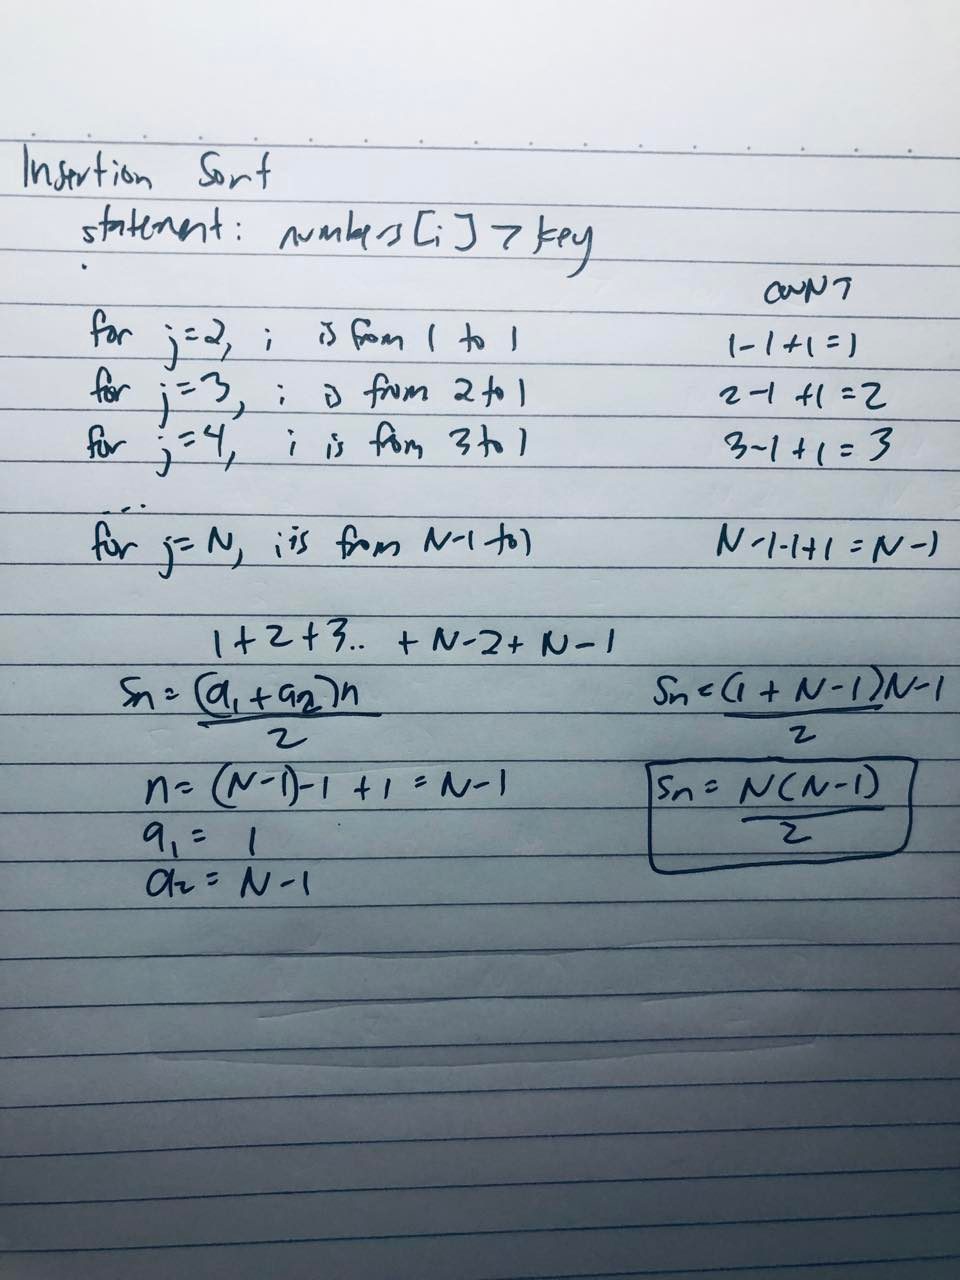 Insertion Sort
statement: numbers[i] > key
COUNT
for j=2, i is from 1 to 1 1-1+1=1
for j=3, i is from 2 to 1 2-1+1=2
for j=4, i is from 3 to 1 3-1+1=3
...
for j=N, i is from N-1 to 1 N-1-1+1=N-1
1+2+3.. +N-2+N-1
Sn=(a₁+a₂)n/2 Sn=(1+N-1)N-1/2
n=(N-1)-1+1=N-1 Sn=N(N-1)/2
a₁=1
a₂=N-1